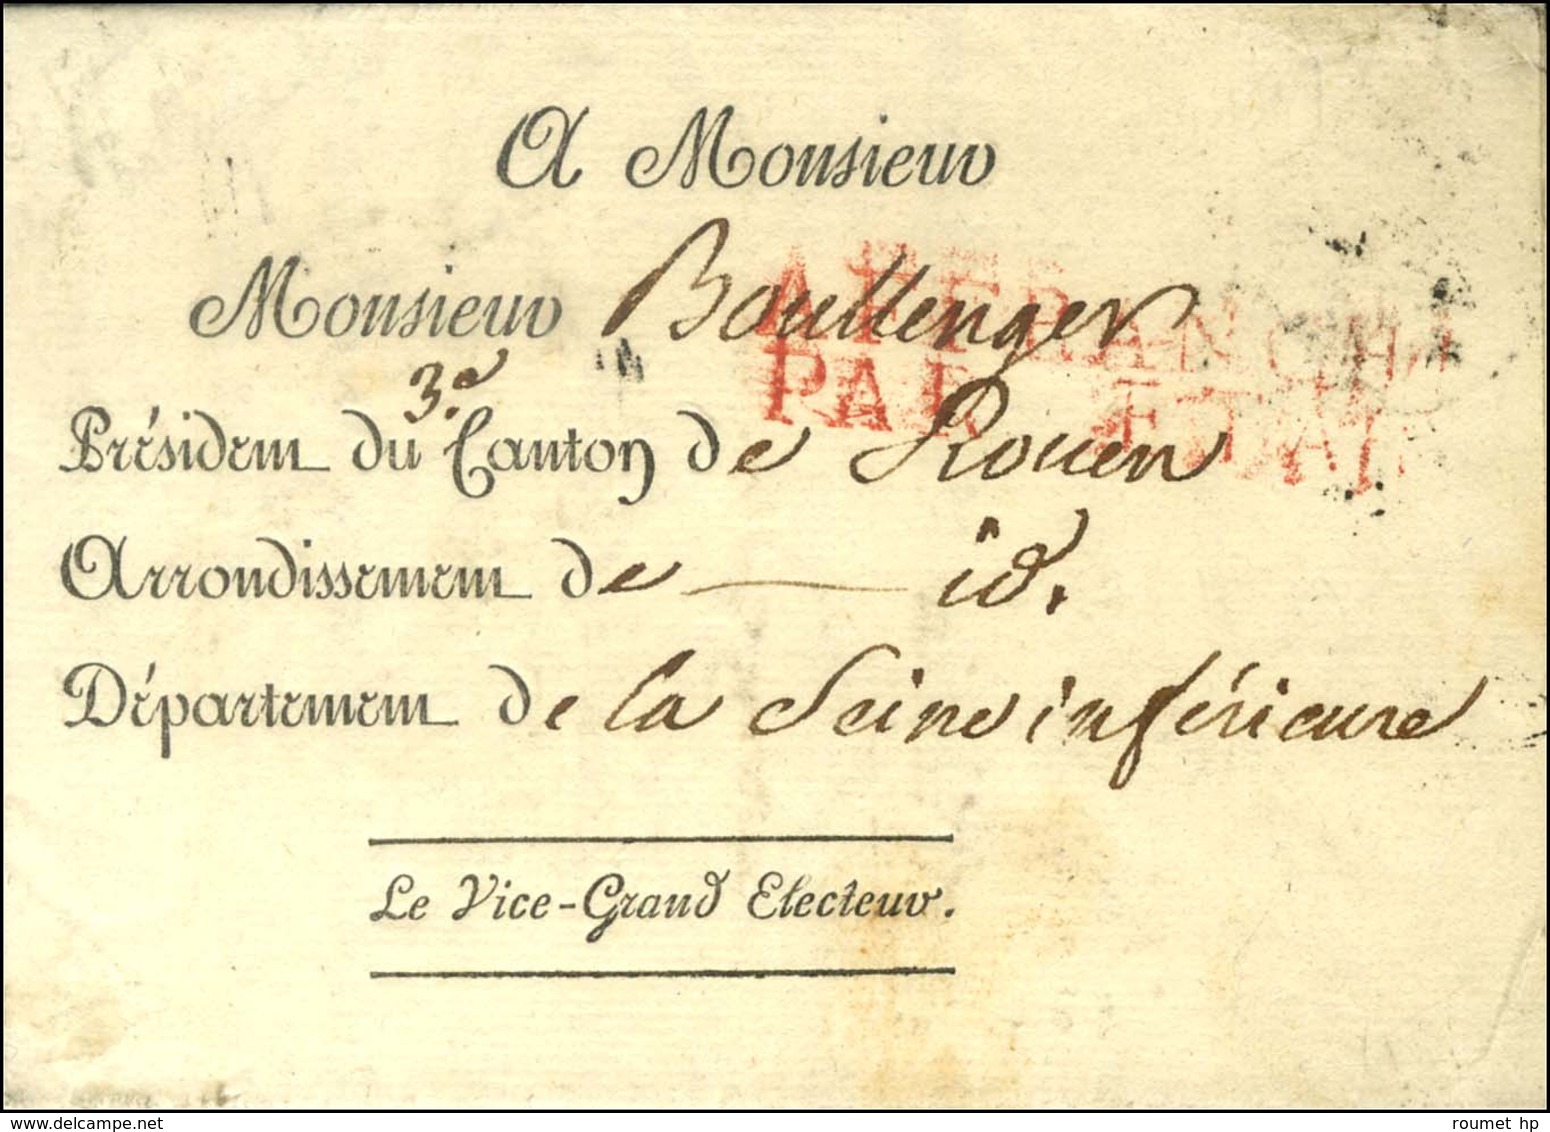 A Monsieur
Monsieur Boullenger
AFFRANCHI
PAR ETAT
Président du 3.e Canton de Rouen
Arrondissement de id.
Département de la Seine inférieure
Le Vice-Grand Electeur.
delcampe.net
roumet hp